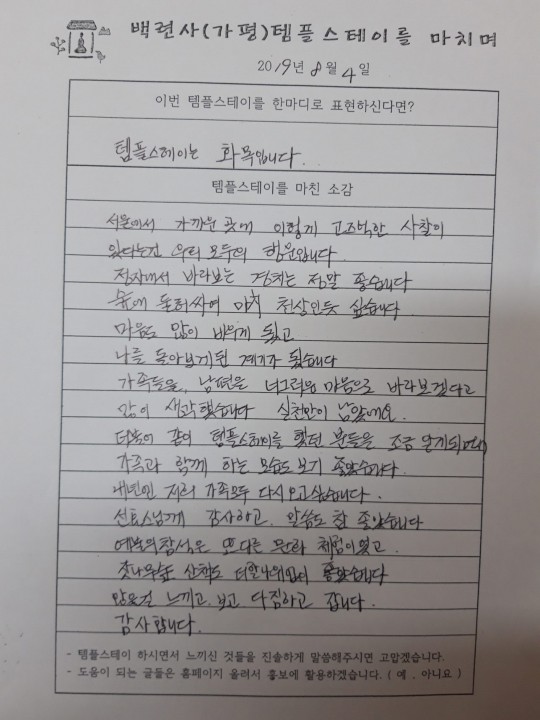 백련사(가평)템플스테이를 마치며
2019년 8월 4일
이번 템플스테이를 한마디로 표현하신다면?
템플스테이는 화목입니다.
템플스테이를 마친 소감
서울에서 가까운 곳에 이렇게 고즈넉한 사찰이
있다는건 우리 모두의 행운입니다.
정자에서 바라보는 경치는 정말 좋습니다
숲에 둘러싸여 마치 천상인듯 싶습니다
마음도 많이 비우게 됐고
나를 돌아보게된 계기가 됐습니다
가족들을, 남편을 너그러운 마음으로 바라보겠다고
많이 생각했습니다 실천만이 남았네요.
더불어 같이 템플스테이를 했던 분들을 조금 알게되어
가족과 함께 하는 모습도 보기 좋았습니다.
내년엔 저희 가족모두 다시오고싶습니다.
선효스님께 감사하고, 말씀도 참 좋았습니다
예불의참석은 또다른 문화 체험이였고,
잣나무숲 산책도 더할나위없이 좋았습니다
많은걸 느끼고 보고 다짐하고 갑니다.
감사합니다.
- 템플스테이 하시면서 느끼신 것들을 진솔하게 말씀해주시면 고맙겠습니다.
- 도움이 되는 글들은 홈페이지 올려서 홍보에 활용하겠습니다.( 예 , 아니요 )